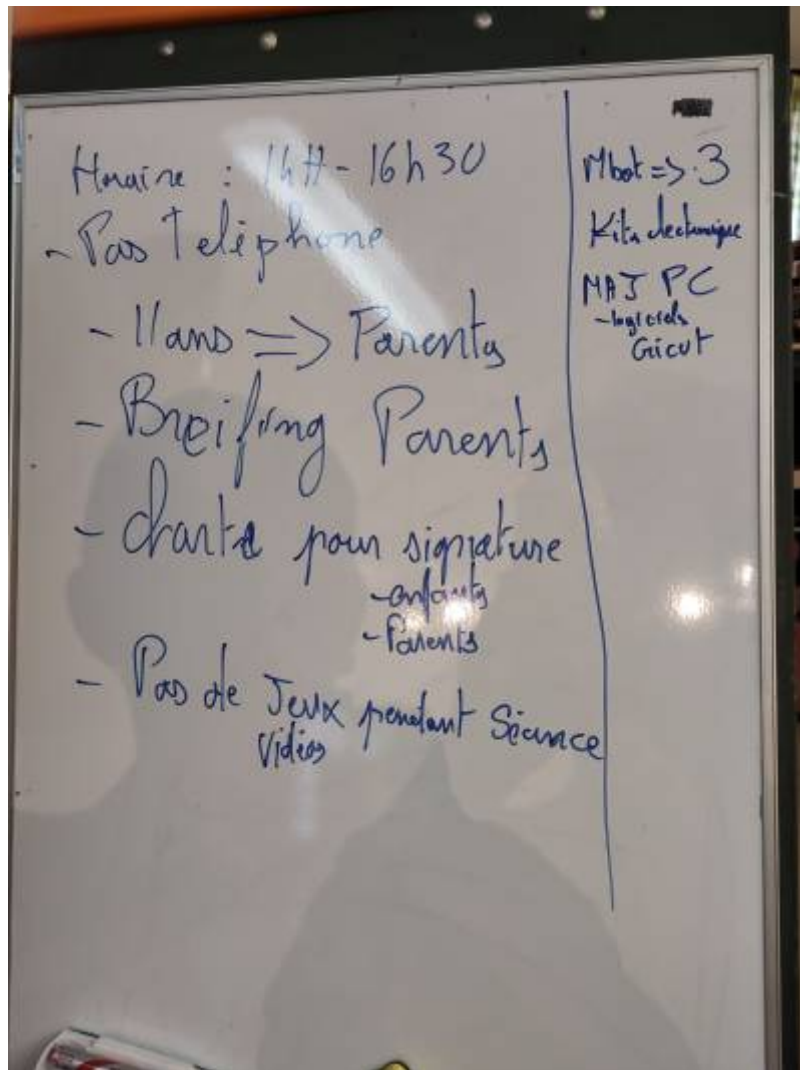 Horaire : 14H - 16h30
- Pas Teléphone
- 11ans => Parents
- Breifing Parents
- charte pour signature
- enfants
- Parents
- Pas de Jeux pendant Séance
Vidéos
Mbot => 3
MAJ PC
- logiciels